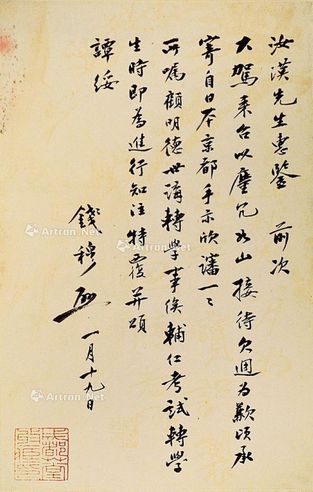 汝漢先生惠鑒 前次
大駕來台以塵冗如山接待欠週為歉頃承
寄自日本京都手示欣審一〻
所囑顧明德世講轉學事俟輔仁考試轉學
生時即為進行知注特覆并頌
譚綏
錢穆 一月十九日
Artron.Net
Artron.Net
Artron.Net
Artron.Net